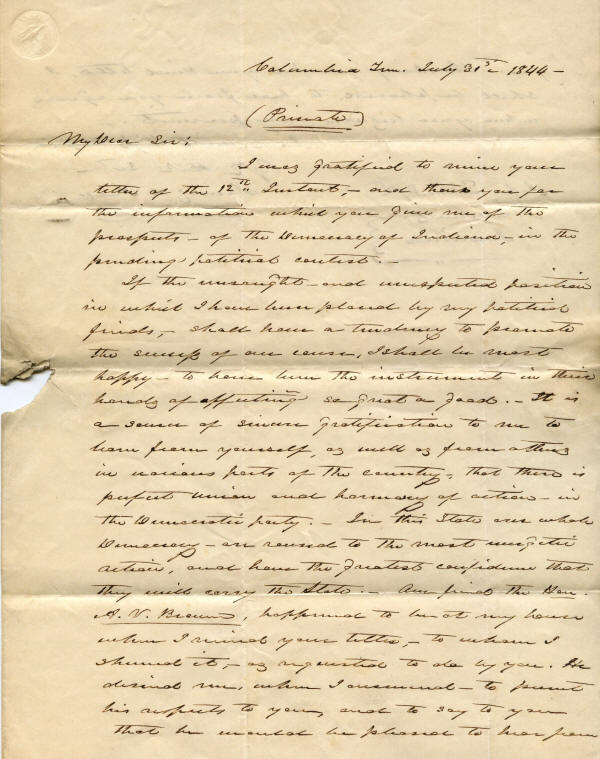 Columbia Ten. July 31st 1844 —
(Private)
My Dear Sir;
I was gratified to receive your
letter of the 12th Instant, – and thank you for
the information which you give me of the
prospects – of the Democracy of Indiana, – in the
pending political contest. –
If the unsought – and unexpected position
in which I have been placed by my political
friends, – shall have a tendency to promote
the success of our cause, I shall be most
happy – to have been the instrument in their
hands of effecting so great a good. – It is
a source of sincere gratification to me to
learn from yourself, as well as from others
in various parts of the country, that there is
perfect union and harmony of action – in
the Democratic party. – In this State our whole
Democracy – are roused to the most energetic
action, and have the greatest confidence that
they will carry the State. – Our friend the Hon.
A. V. Brown, happened to be at my house
when I received your letter, – to whom I
showed it, – as requested to do by you. He
desired me, when I answered – to present
his respects to you, and to say to you
that he would be pleased to hear from